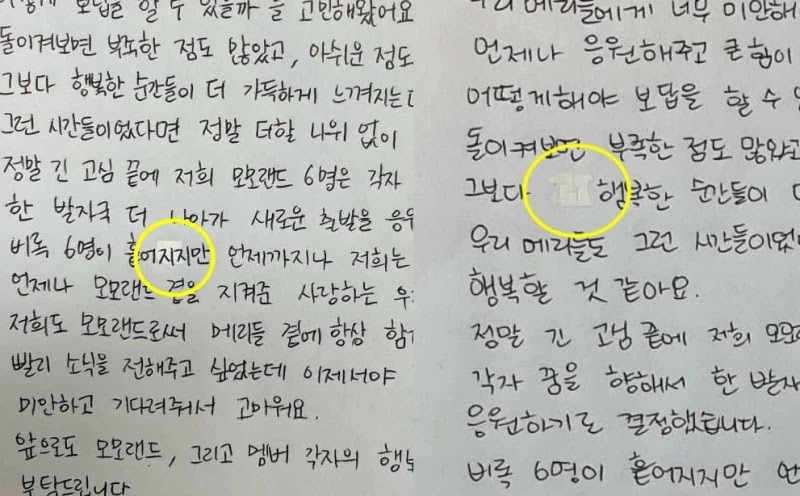 보답을 할 수 있을까 를 고민해왔어요
돌이켜보면 부족한 점도 많았고, 아쉬운 점도
그보다 행복한 순간들이 더 가득하게 느껴지는
그런 시간들이였다면 정말 더할 나위 없이
정말 긴 고심 끝에 저희 모모랜드 6명은 각자
한 발자국 더 나아가 새로운 출발을 응
비록 6명이 흩어지지만 언제까지나 저희는
언제나 모모랜드 곁을 지켜준 사랑하는 우
저희도 모모랜드로써 메리들 곁에 항상 함
빨리 소식을 전해주고 싶었는데 이제서야
미안하고 기다려줘서 고마워요.
앞으로도 모모랜드, 그리고 멤버 각자의 행보
부탁드립니다
우리 메리들에게 너무 미안해
언제나 응원해주고 큰 힘이
어떻게해야 보답을 할 수 있
돌이켜보면 부족한 점도 많았고
그보다 더 행복한 순간들이 더
우리 메리들도 그런 시간들이였
행복할 것 같아요.
정말 긴 고심 끝에 저희 모모
각자 꿈을 향해서 한 발자
응원하기로 결정했습니다.
비록 6명이 흩어지지만 언